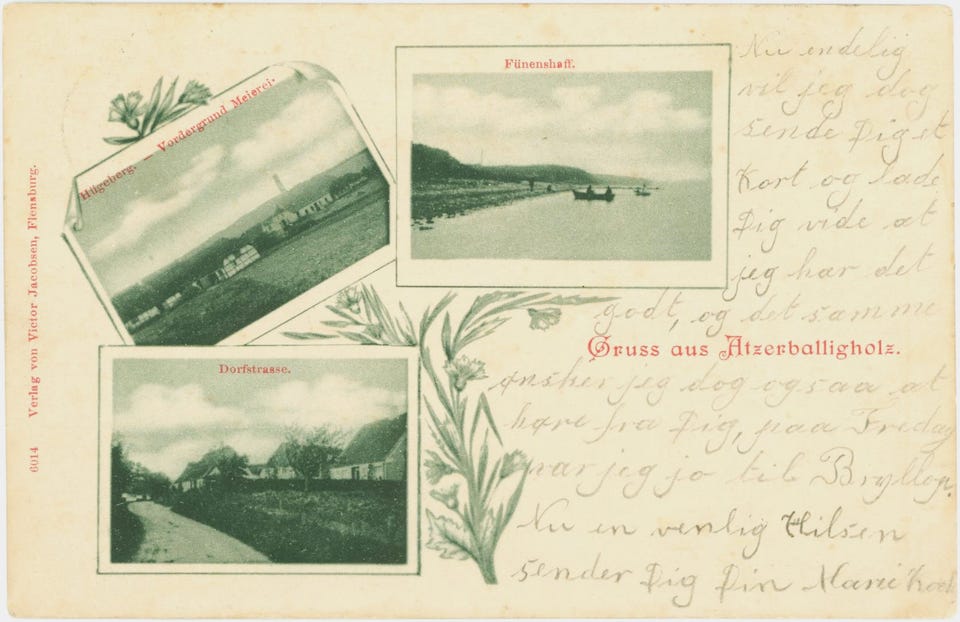 Hügeberg. — Vordergrund Meierei.
Fünenshaff.
Dorfstrasse.
6014 Verlag von Victor Jacobsen, Flensburg.
Gruss aus Atzerballigholz.
Nu endelig
vil jeg dog
sende Dig et
Kort og lade
Dig vide at
jeg har det
godt, og det samme
ønsker jeg dog ogsaa at
høre fra Dig, paa Fredag
var jeg jo til Bryllup.
Nu en venlig Hilsen
sender Dig Din Marie